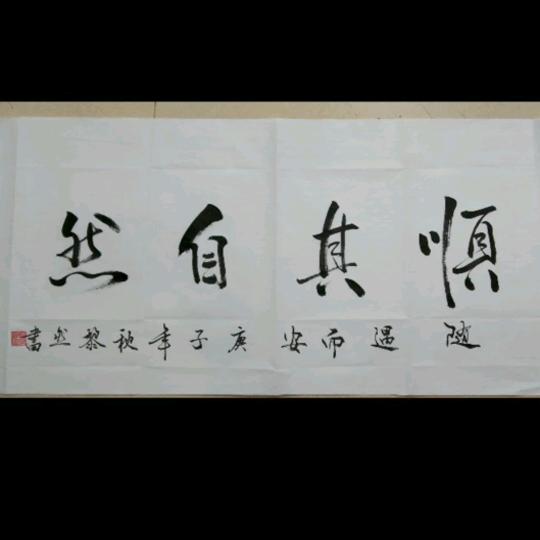 順其自然
隨遇而安 庚子年秋黎丛書